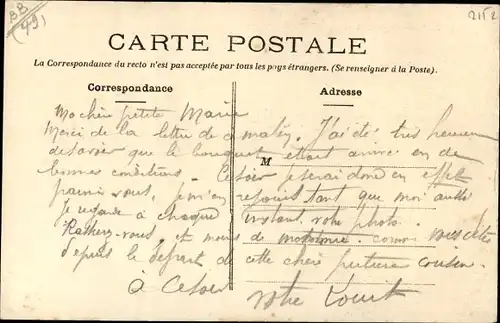 BB
(49)
2152
CARTE POSTALE
La Correspondance du recto n'est pas acceptée par tous les pays étrangers. (Se renseigner à la Poste).
Correspondance
Adresse
M
Ma chère petite Marie
Merci de la lettre de ce matin. J'ai été très heureux
de savoir que le bouquet était arrivé en de
bonnes conditions. Ce soir je serai donc en effet
parmi vous, je m'en réjouis tant que moi aussi
je regarde à chaque instant votre photo.
vous, et moins de monotonie comme vous dites
depuis le départ de cette chère petite cousine.
à ce soir
votre